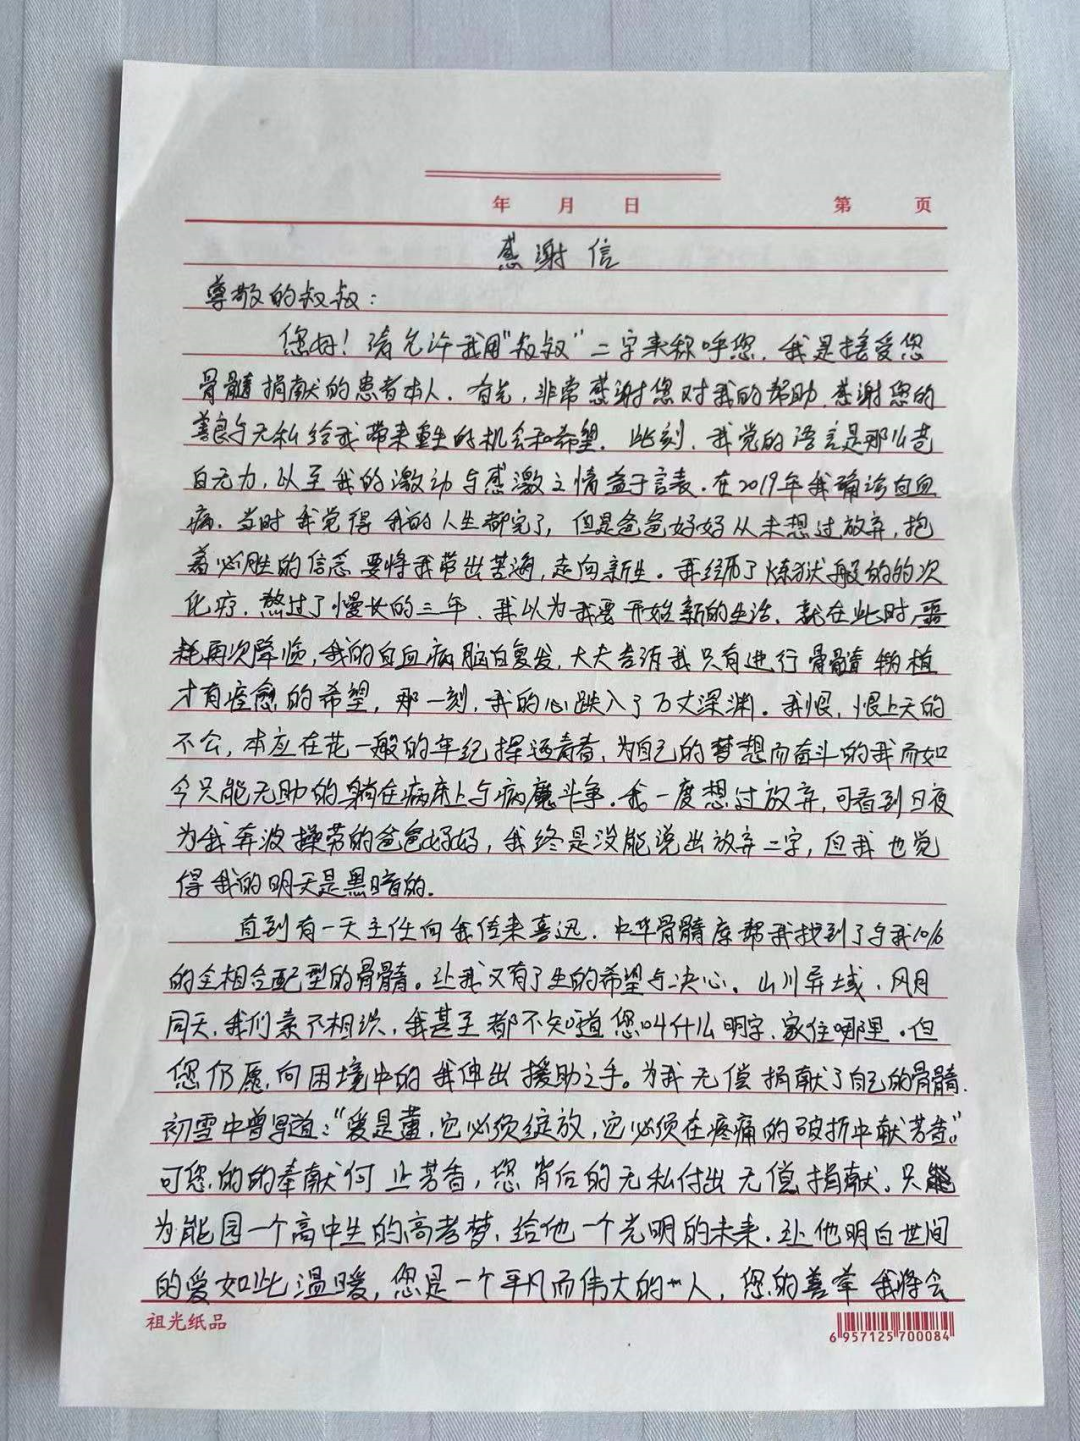 年 月 日 第 页
感谢信
尊敬的叔叔：
您好！请允许我用"叔叔"二字来称呼您，我是接受您
骨髓捐献的患者本人．首先，非常感谢您对我的帮助，感谢您的
善良与无私给我带来重生的机会和希望．此刻，我觉的语言是那么苍
白无力，以至我的激动与感激之情益于言表．在2019年我确诊白血
病．当时我觉得我的人生都完了，但是爸爸妈妈从未想过放弃，抱
着必胜的信念要将我带出苦海，走向新生。我经历了炼狱般的的次
化疗．熬过了慢长的三年．我以为我要开始新的生活．就在此时，噩
耗再次降临，我的白血病脑白复发，大夫告诉我只有进行骨髓移植
才有痊愈的希望，那一刻，我的心跌入了万丈深渊。我恨，恨上天的
不公，本应在花一般的年纪挥洒青春，为自己的梦想而奋斗的我而如
今只能无助的躺在病床上与病魔斗争．我一度想过放弃，可看到日夜
为我奔波操劳的爸爸妈妈，我终是没能说出放弃二字，但我也觉
得我的明天是黑暗的．
直到有一天主任向我传来喜迅．中华骨髓库帮我找到了与我10/6
的全相合配型的骨髓。让我又有了生的希望与决心。山川异域．风月
同天，我们素不相识，我甚至都不知道您叫什么明字，家住哪里．但
您仍愿向困境中的我伸出援助之手。为我无偿捐献了自己的骨髓．
初雪中曾写道："爱是蕾，它必须绽放，它必须在疼痛的破折中献芳香。"
可您的的奉献何止芳香，您背后的无私付出无偿捐献。只能
为能园一个高中生的高考梦．给他一个光明的未来．让他明白世间
的爱如此温暖，您是一个平凡而伟大的人，您的善举我将会
祖光纸品
6 957125 700084